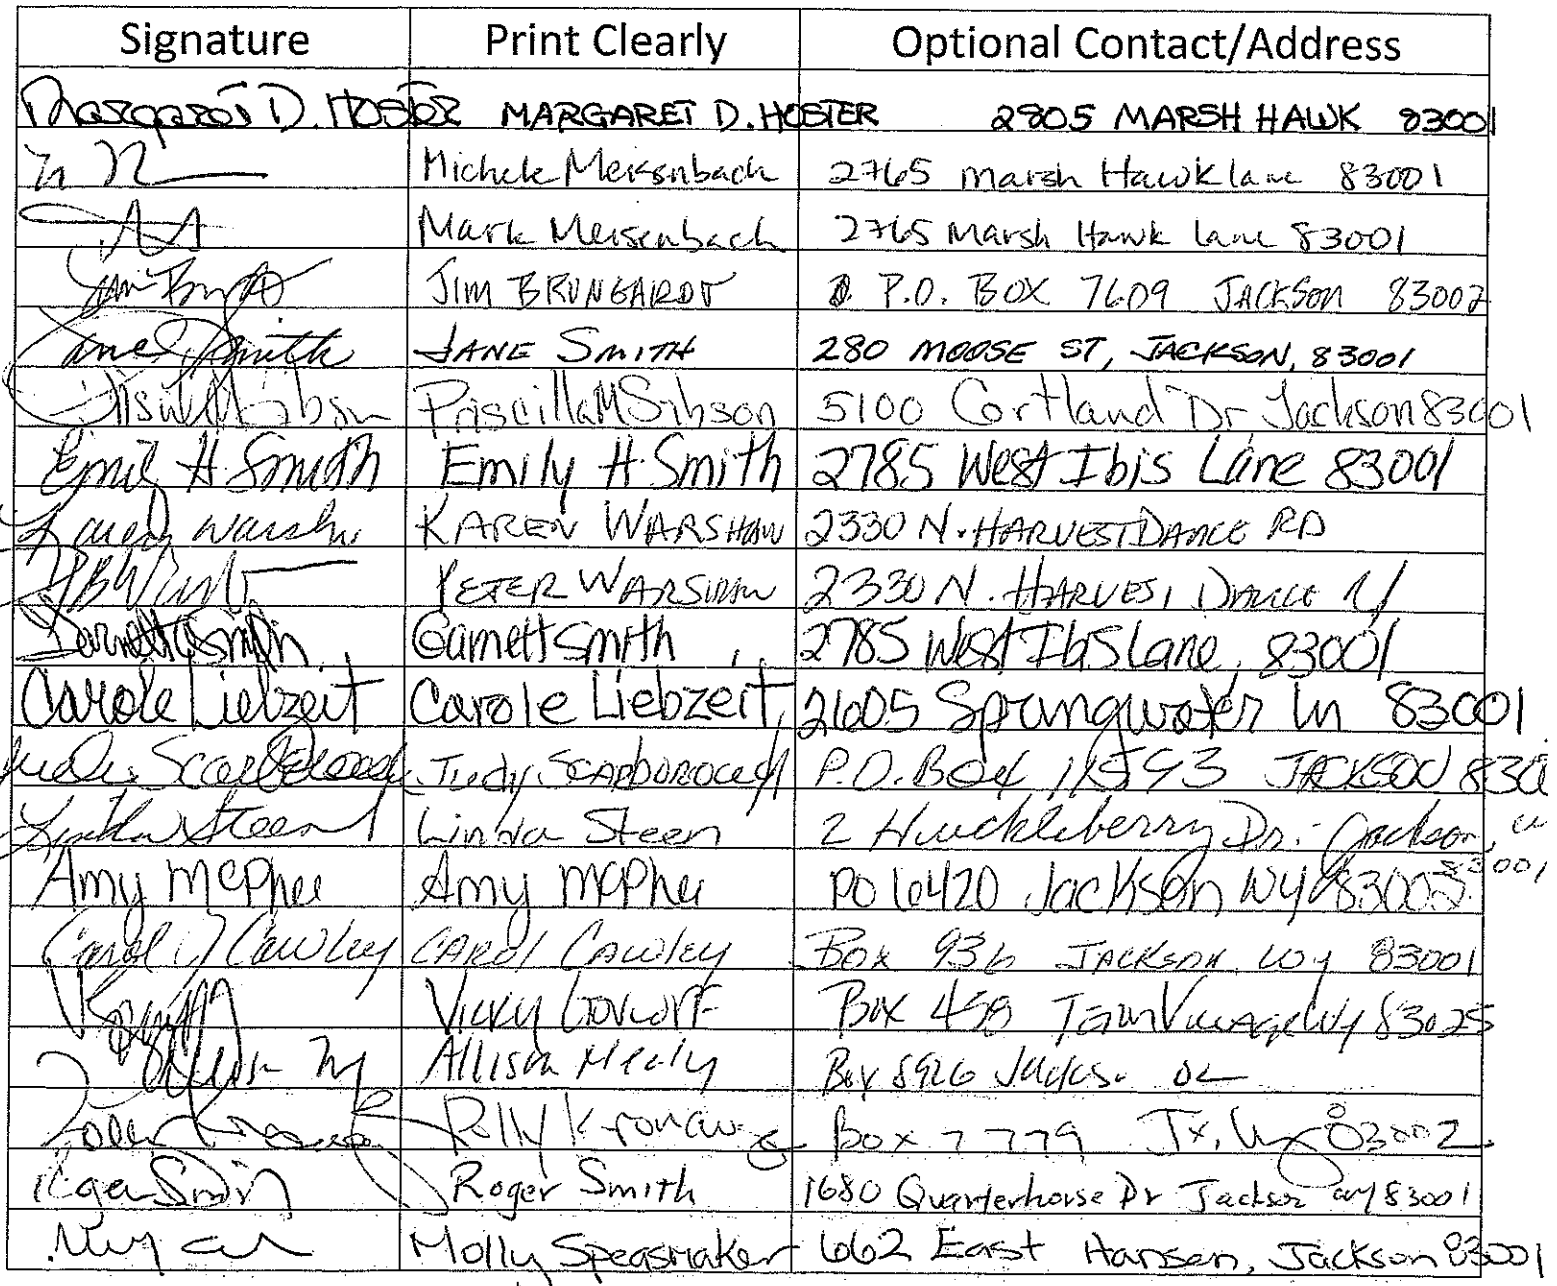 Signature Print Clearly Optional Contact/Address
Margaret D. Hoster MARGARET D. HOSTER 2805 MARSH HAWK 83001
Michele Meisenbach 2765 Marsh Hawk lane 83001
Mark Meisenbach 2765 Marsh Hawk lane 83001
JIM BRUNGARDT P.O. BOX 7609 JACKSON 83002
Jane Smith JANE SMITH 280 MOOSE ST, JACKSON, 83001
Priscilla M Gibson 5100 Cortland Dr Jackson 83001
Emily H. Smith Emily H Smith 2785 West Ibis Lane 83001
Karen Warshaw KAREN WARSHAW 2330 N. HARVEST DANCE RD
PETER WARSHAW 2330 N. HARVEST DANCE Rd
Garnett Smith Garnett Smith 2785 West Ibis Lane, 83001
Carole Liebzeit Carole Liebzeit, 2605 Springwater Ln 83001
Judy Scarborough Judy SCARBOROUGH P.O. Box 11593 JACKSON 830
Linda Steen Linda Steen 2 Huckleberry Dr. Jackson, 83001
Amy McPhee Amy McPhee PO 6420 Jackson WY 83002
Carol Cawley CAROL CAWLEY Box 936 JACKSON, WY 83001
Vicky Box 458 Teton Village WY 83025
Allison Box 8926
Polly Box 7779 Jx, Wy 83002
Roger Smith Roger Smith 1680 Quarterhorse Dr Jackson WY 83001
Molly Speasmaker 662 East Hansen, Jackson 83001